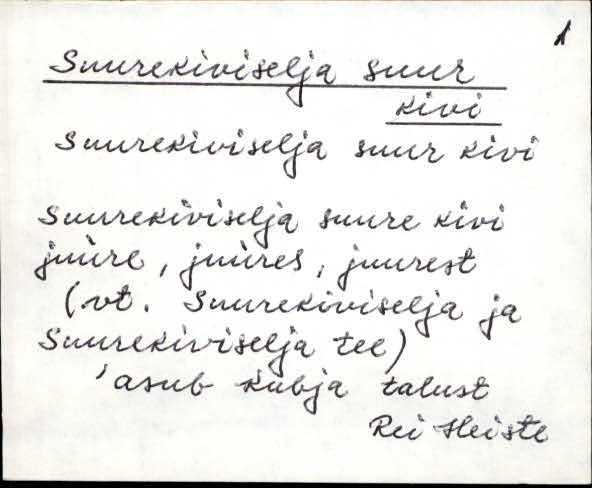 1
Suurekiviselja suur
kivi
Suurekiviselja suur kivi
Suurekiviselja suure kivi
juure, juures, juurest
(vt. Suurekiviselja ja
Suurekiviselja tee)
'asub Kubja talust
Rei Heiste